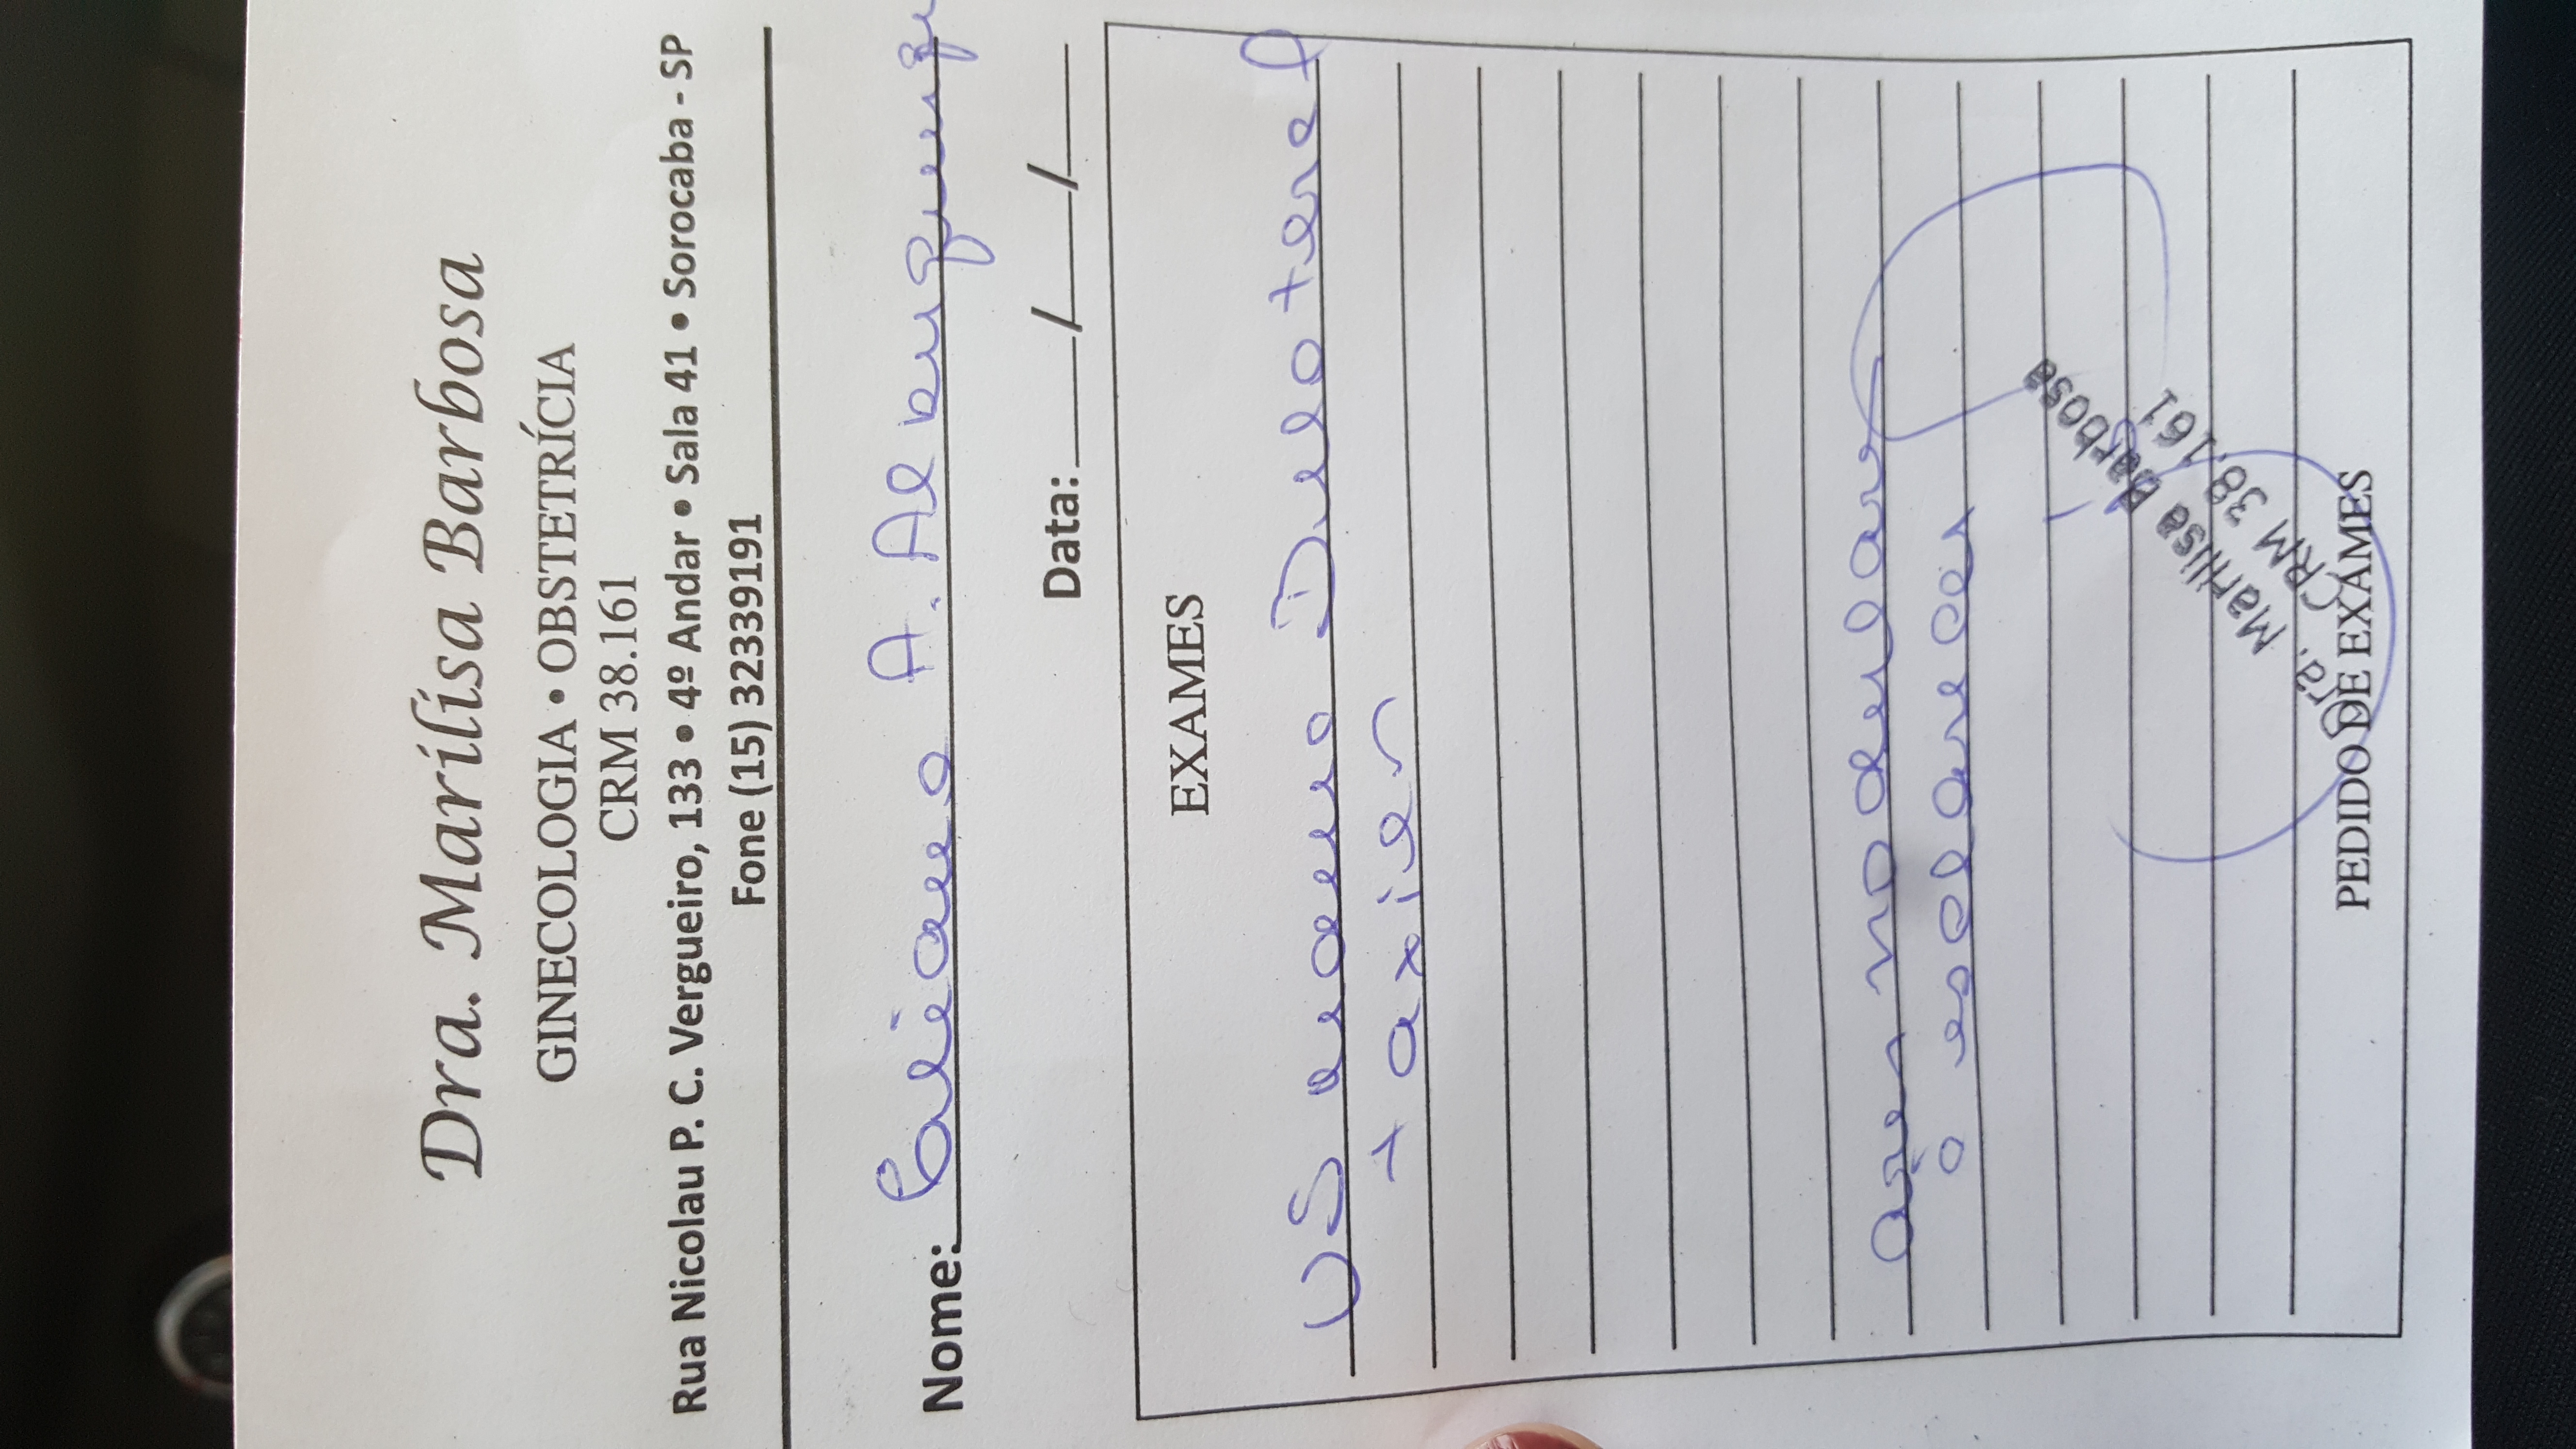 Dra. Marilisa Barbosa
GINECOLOGIA • OBSTETRÍCIA
CRM 38.161
Rua Nicolau P. C. Vergueiro, 133 • 4º Andar • Sala 41 • Sorocaba - SP
Fone (15) 32339191
Nome: A. Albuquerque
Data: / /
EXAMES
US mama Bilateral
+ axilar
area nodular
à esclarecer
Dra. Marilisa Barbosa
CRM 38.161
PEDIDO DE EXAMES